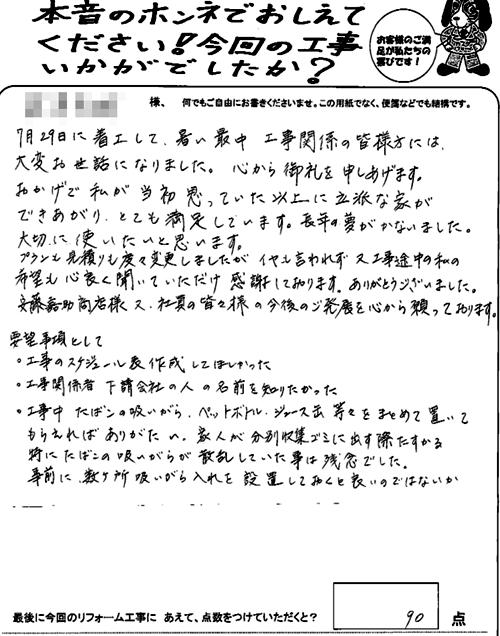 本音のホンネでおしえて
ください！今回の工事
いかがでしたか？
お客様のご満
足が私たちの
喜びです！
様、 何でもご自由にお書きくださいませ。この用紙でなく、便箋などでも結構です。
7月29日に着工して、暑い最中 工事関係の皆様方には、
大変お世話になりました。心から御礼を申しあげます。
おかげで私が当初思っていた以上に立派な家が
できあがり、とても満足しています。長年の夢がかないました。
大切に使いたいと思います。
プランも見積りも度々変更しましたがイヤとも言われず又工事途中の私の
希望も心良く聞いていただけ感謝しております。ありがとうございました。
安藤嘉助商店様又、社員の皆々様の今後のご発展を心から願っております。
要望事項として
・工事のスケジュール表作成してほしかった
・工事関係者下請会社の人の名前を知りたかった
・工事中 たばこの吸いがら、ペットボトル、ジュース缶 等々をまとめて置いて
もらえればありがたい。家人が分別収集ゴミに出す際たすかる
特にたばこの吸いがらが散乱していた事は残念でした。
事前に、数ヶ所吸いがら入れを設置しておくと良いのではないか
最後に今回のリフォーム工事に あえて、点数をつけていただくと？ 90 点